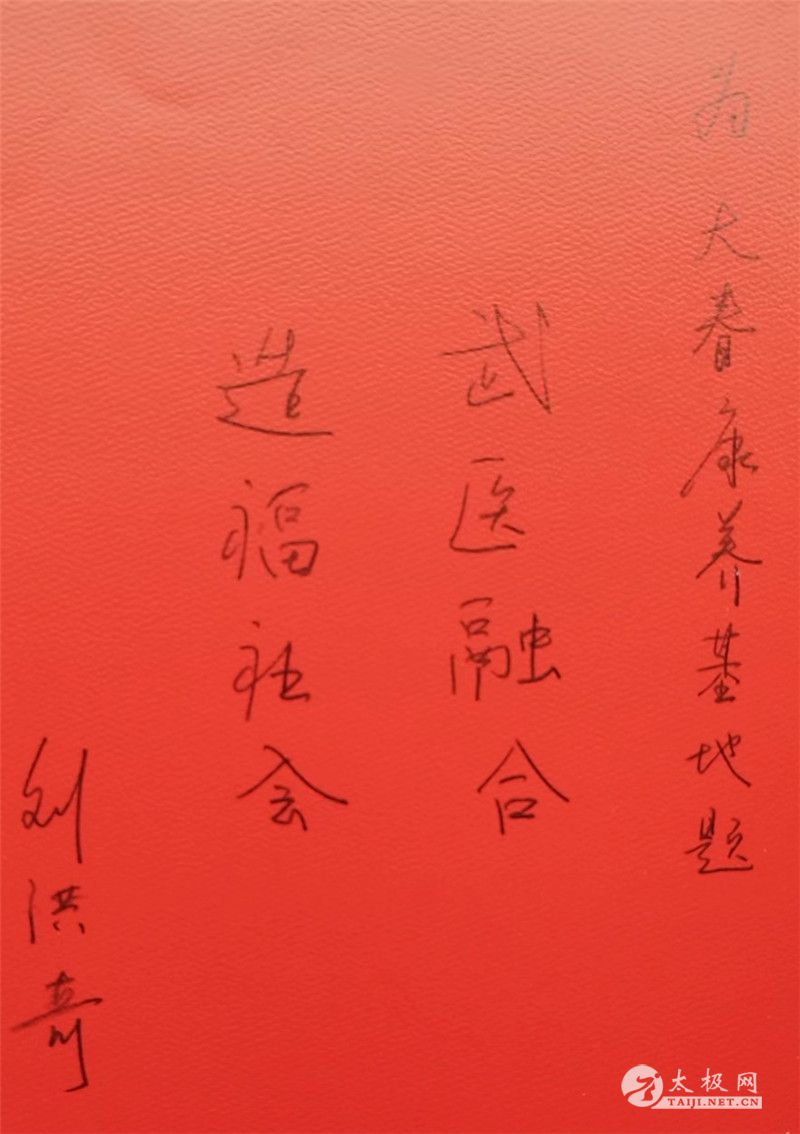 为大春康养基地题
武医融合
造福社会
刘洪奇
太极网
TAIJI.NET.CN